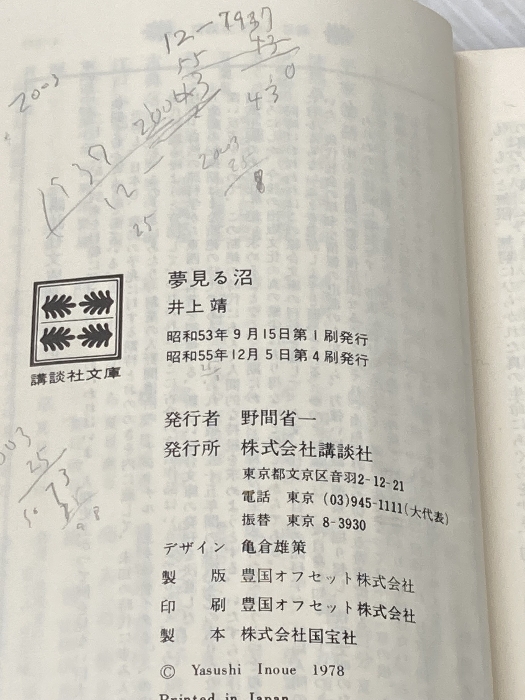 12-7937
55
43
2003
43
2003
1937
12-
25
夢見る沼
井上 靖
昭和53年9月15日第1刷発行
昭和55年12月5日第4刷発行
講談社文庫
発行者 野間省一
発行所 株式会社講談社
東京都文京区音羽2-12-21
電話 東京 (03)945-1111(大代表)
振替 東京 8-3930
デザイン 亀倉雄策
製 版 豊国オフセット株式会社
印 刷 豊国オフセット株式会社
製 本 株式会社国宝社
© Yasushi Inoue 1978
Printed in Japan
25